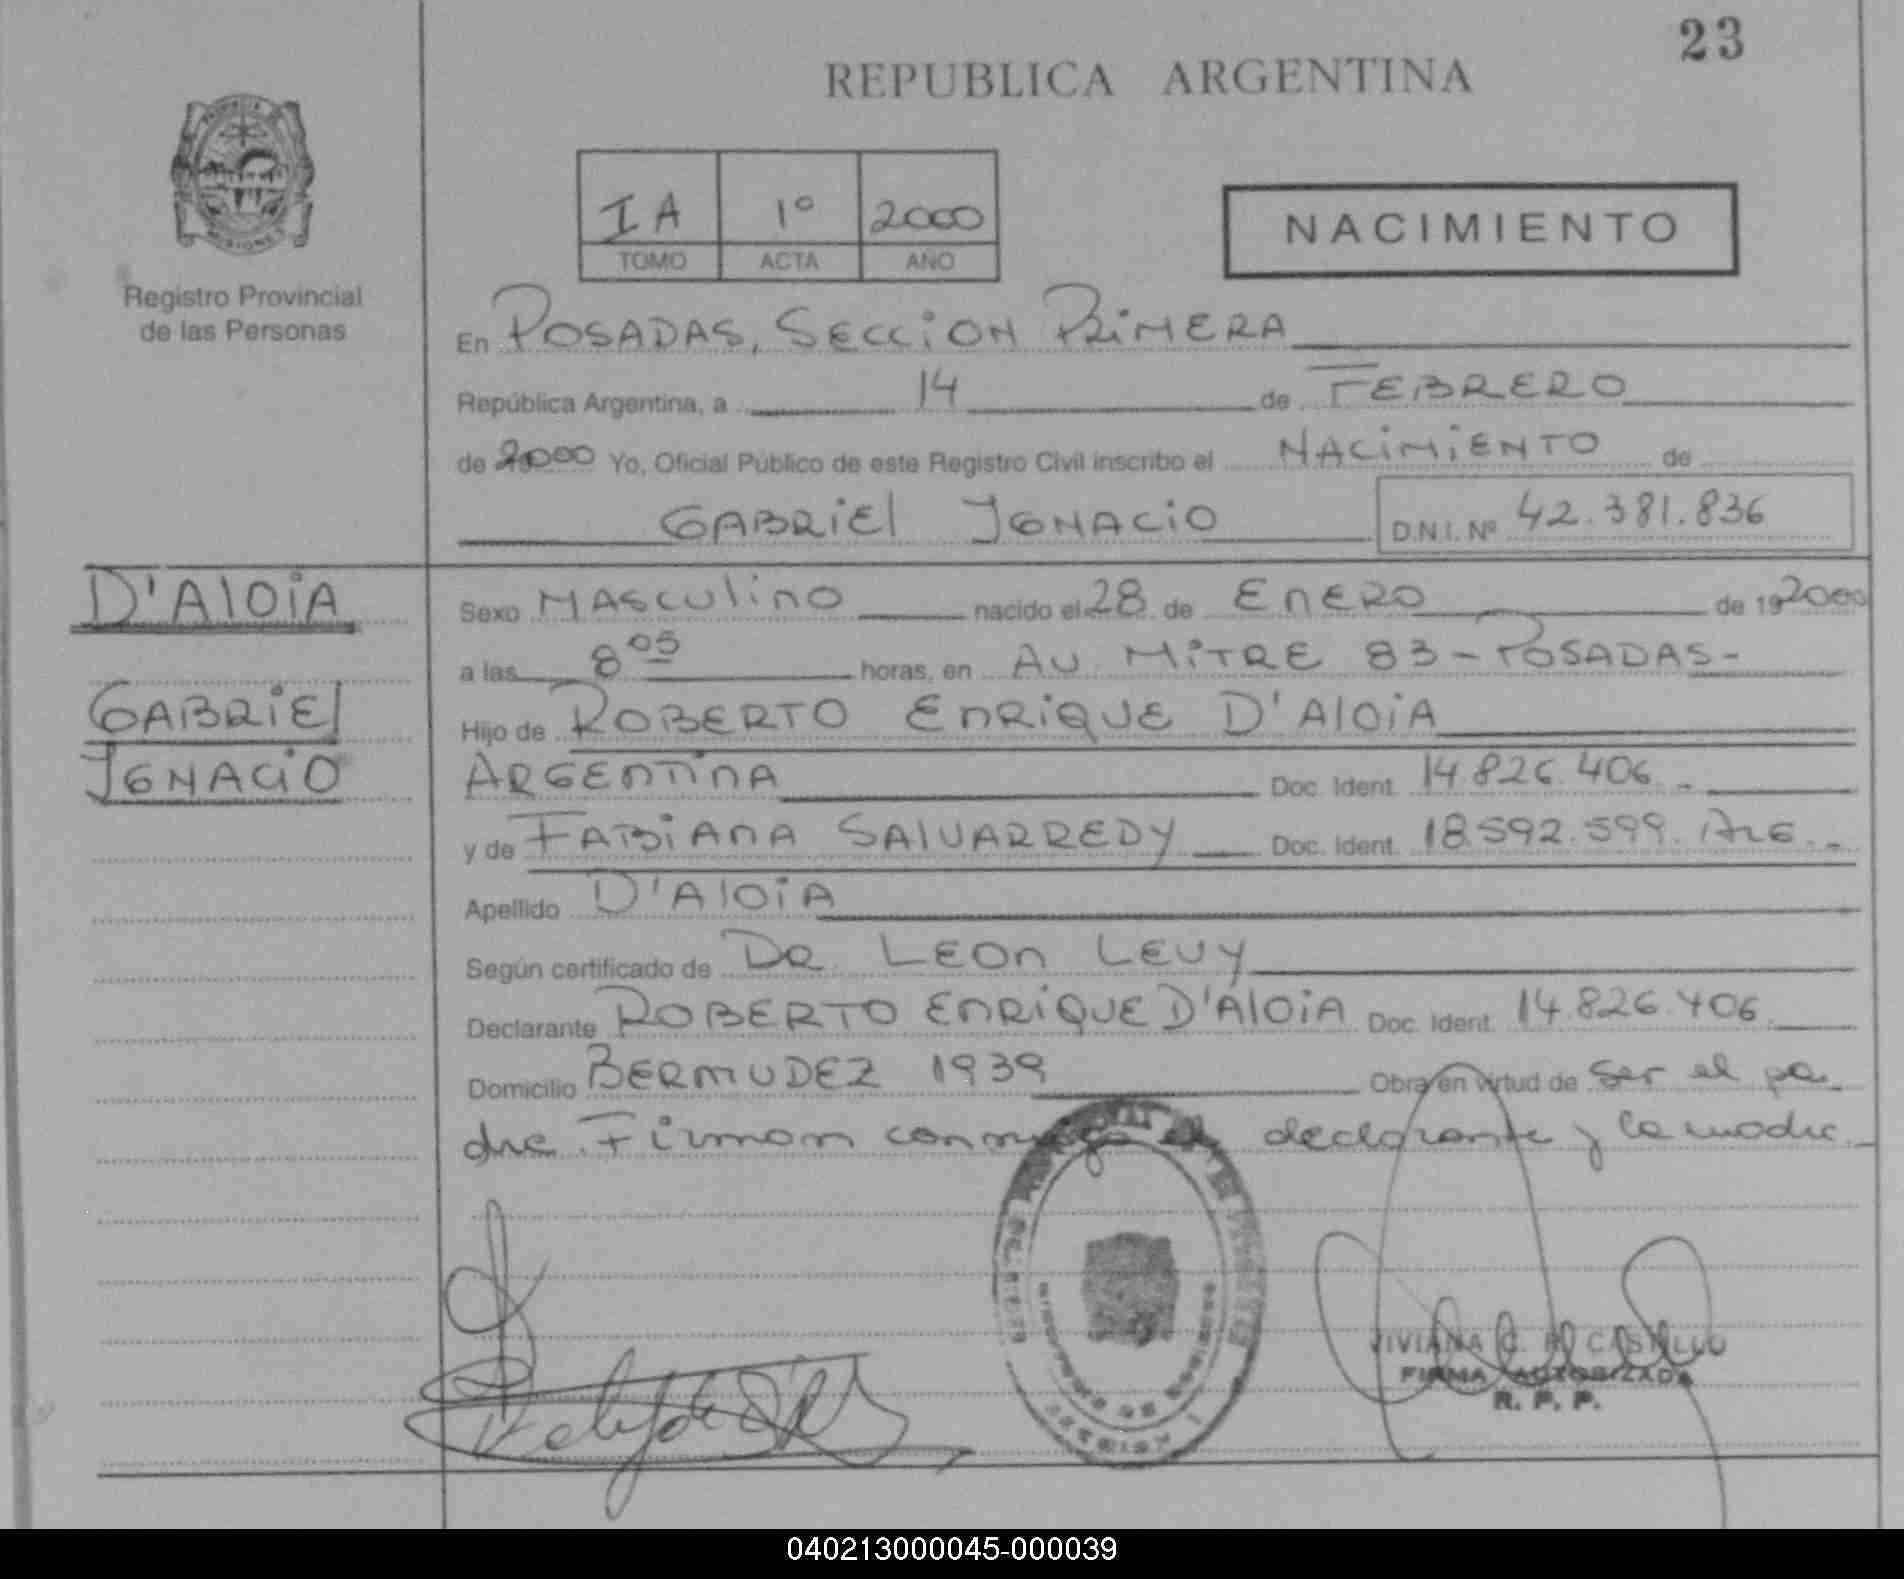 23
REPUBLICA ARGENTINA
IA 1º 2000
TOMO ACTA AÑO
NACIMIENTO
Registro Provincial
de las Personas
En POSADAS, SECCION PRIMERA
República Argentina, a 14 de FEBRERO
de 2000 Yo, Oficial Público de este Registro Civil inscribo el NACIMIENTO de
GABRIEL IGNACIO D.N.I. Nº 42.381.836
D'ALOIA
GABRIEL
IGNACIO
Sexo MASCULINO nacido el 28 de ENERO de 19 2000
a las 8 05 horas, en AV. MITRE 83 - POSADAS -
Hijo de ROBERTO ENRIQUE D'ALOIA
ARGENTINA Doc. Ident. 14.826.406. -
y de FABIANA SALVARREDY Doc. Ident. 18.592.599. ARG. -
Apellido D'ALOIA
Según certificado de DR. LEON LEVY
Declarante ROBERTO ENRIQUE D'ALOIA Doc. Ident. 14.826.406.
Domicilio BERMUDEZ 1939 Obra en virtud de ser el pa
dre. Firman conmigo el declarante y la madre.
VIVIANA C. R. CASTILLO
FIRMA AUTORIZADA
R. P. P.
040213000045-000039